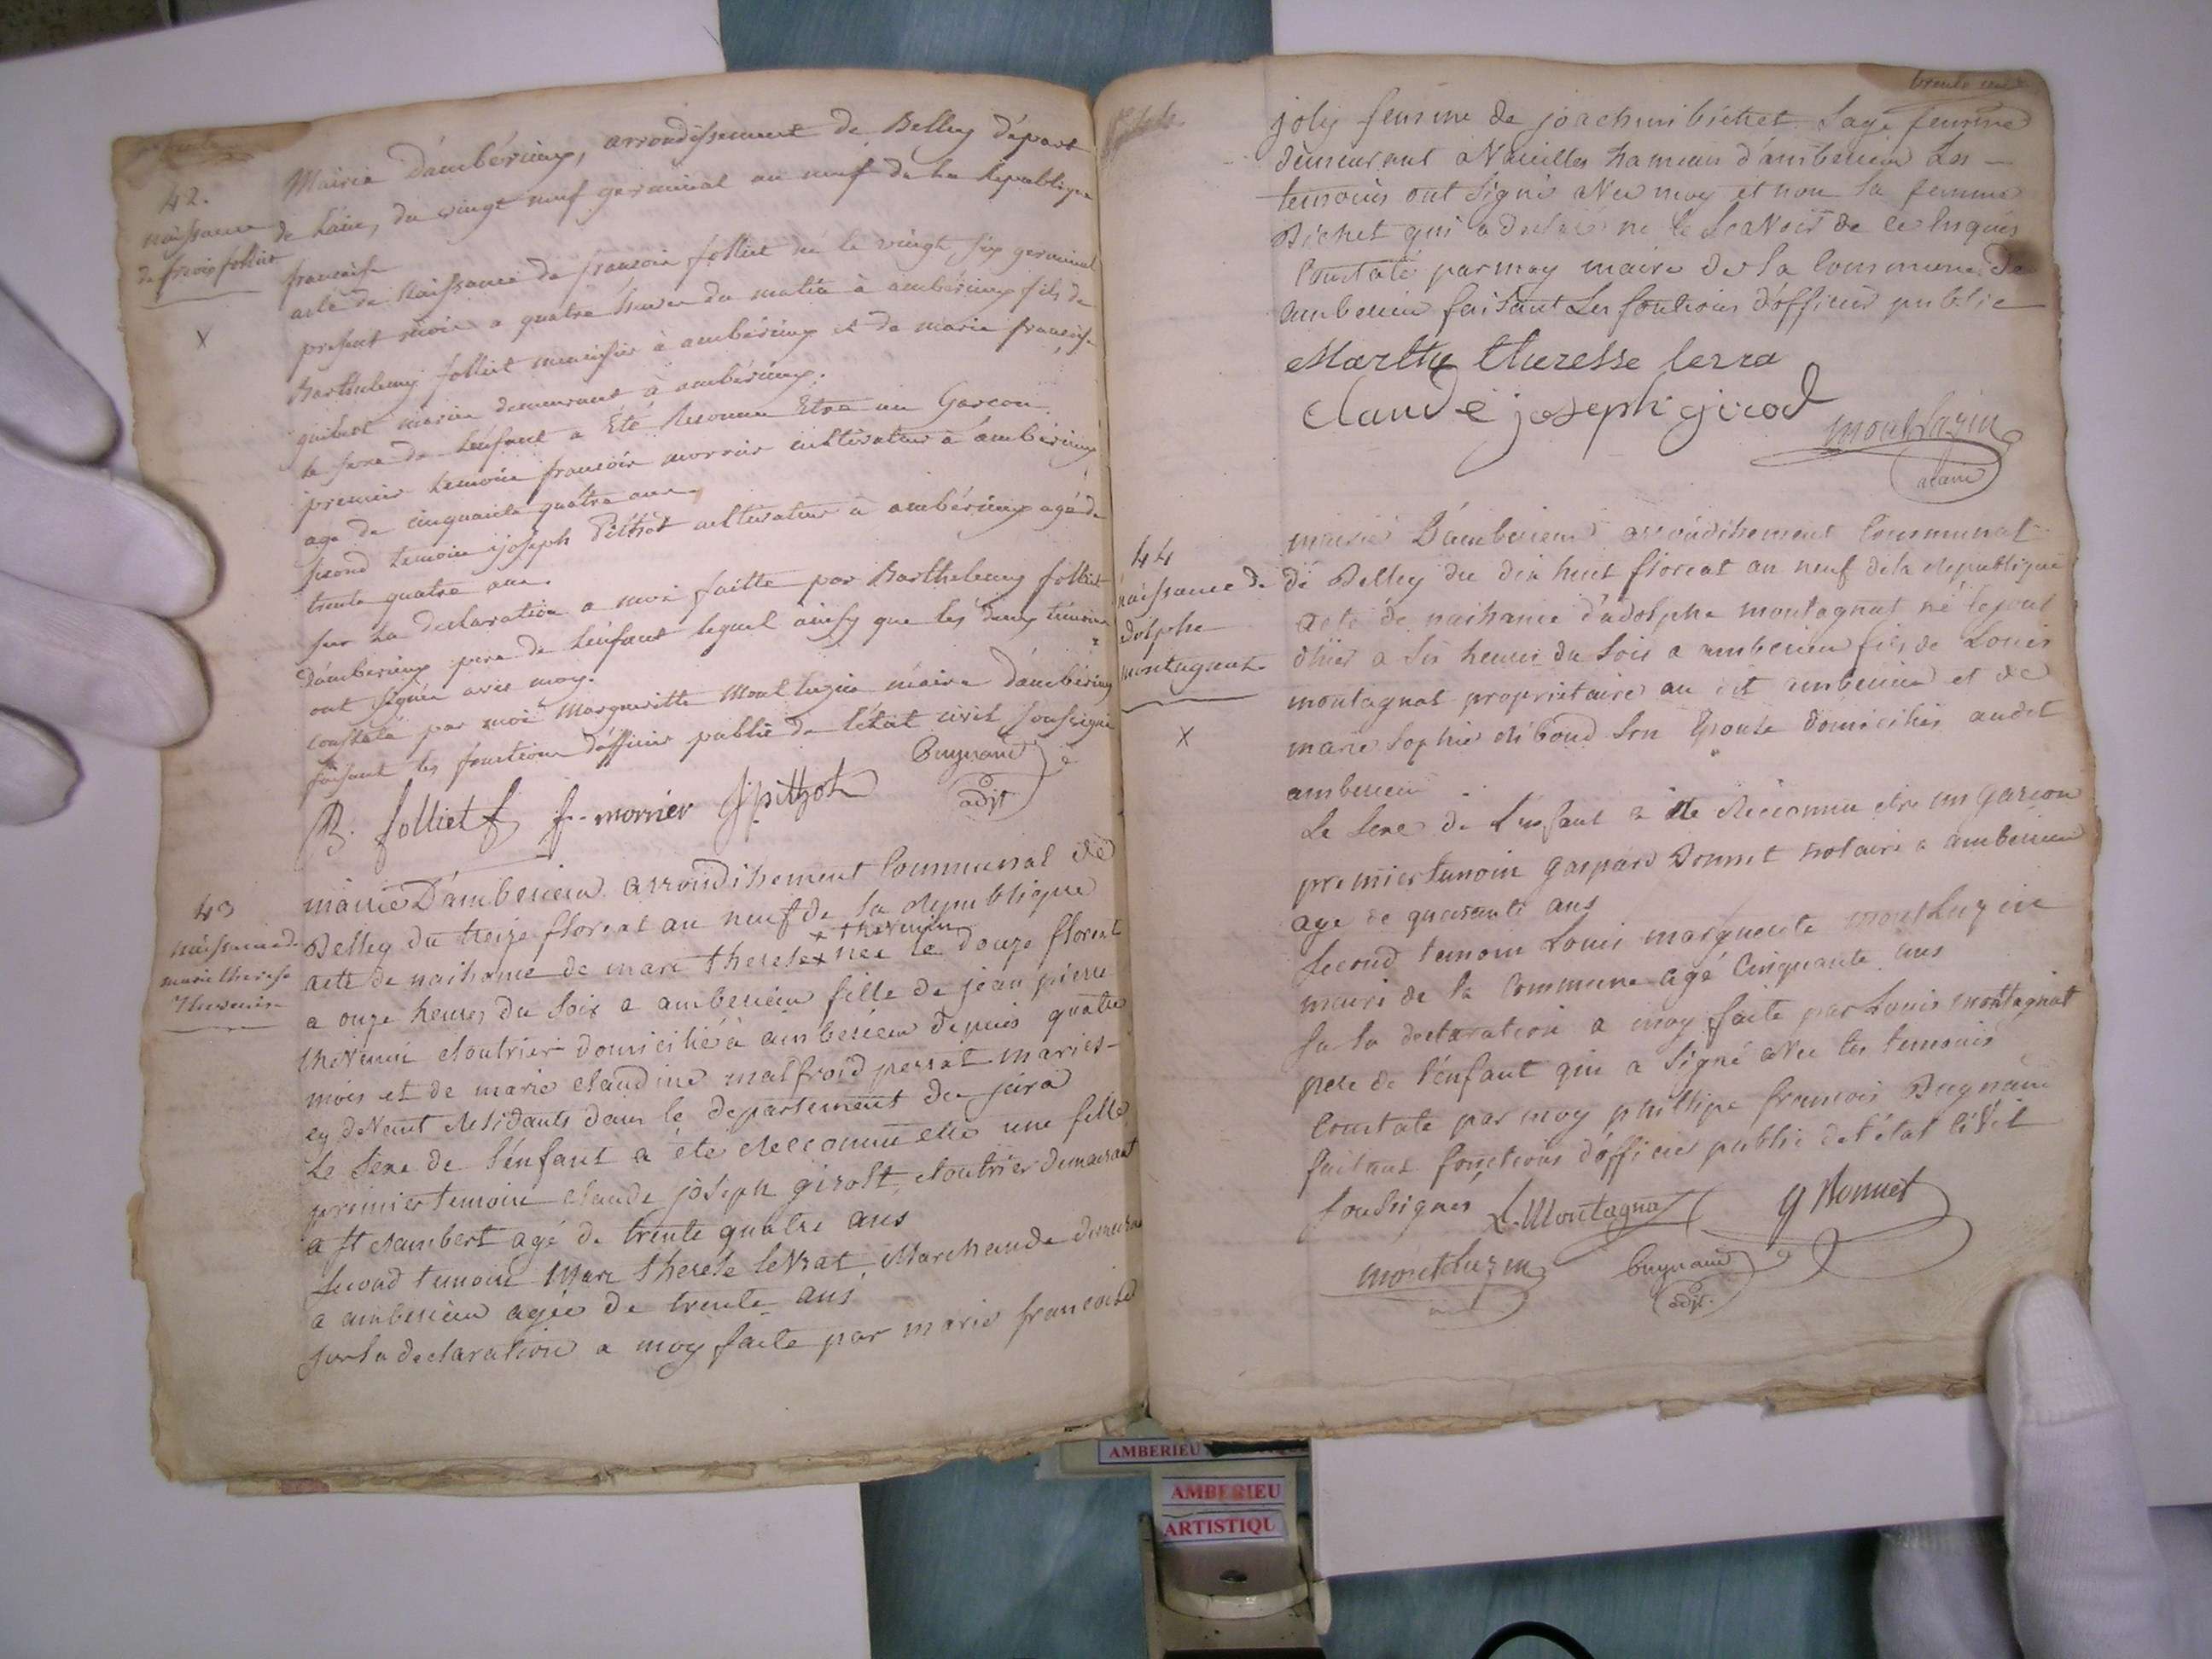 42.
naissance
de françois folliet
X
Mairie d'ambérieux, arrondissement de Belley départ
de Lain, du vingt neuf germinal an neuf de La République
française
acte de Naissance de françois folliet né le vingt six germinal
présent mois a quatre heures du matin à ambérieux fils de
Barthelemy folliet menuisier à ambérieux et de marie françoise
guibert mariés demeurant à ambérieux.
le sexe de Lenfant a Eté Reconnu Etre un Garcon
premier temoin françois morrier cultivateur à ambérieux
agé de cinquante quatre ans
second temoin joseph cultivateur à ambérieux agé de
trente quatre ans.
sur La declaration a moi faitte par Barthelemy folliet
d'amberieux pere de Lenfant lequel ainsy que les deux témoins
ont signés avec moy.
constaté par moi Margueritte Montluzin maire d'ambérieux
faisant les fonctions d'officier public de Létat civil soussigné
B. folliet f. morrier J pittzot Bugnand
adjt
43
naissance de
marie therese
Thevenin
mairie D'amberieu arrondissement Communal de
Belley du treize floreal an neuf de la republique
x thevenin
acte de naissance de marie therese x née le douze floreal
a onze heures du soir a amberieu fille de jean pierre
thevenin cloutrier domicilié à amberieu depuis quatre
mois et de marie claudine malfroid perrat mariés
cy devant residants dans le departement du jura
Le sexe de l'enfant a été reconnu être une fille
premier temoin claude joseph girolt, cloutrier demeurant
a st rambert agé de trente quatre ans
second temoin Marie therese levrat Marchande demeurant
a amberieu agée de trente ans
sur la declaration a moy faite par marie francoise
trente un
joly femme de joachim bichet sage femme
demeurant a Vareilles hameau d'amberieu Les
temoins ont signé avec moy et non la femme
Bichet qui a declaré ne le scavoir de ce requis
Constaté par moy maire de la Commune de
amberieu faisant les fontions d'officier public
Marthe theresse lerra
claude joseph girod
montluzin
maire
44
naissance de
dolphe
montagnat
X
mairie D'amberieu arrondissement Communal
de Belley du dix huit floreal an neuf de la republique
acte de naissance d'adolphe montagnat né le jour
d'hier a six heures du soir a amberieu fils de Louis
montagnat propriétaire au dit amberieu et de
marie Sophie diboud son Epouse domiciliés audit
amberieu
Le sexe de l'enfant a été reconnu etre un garcon
premier temoin gaspard Bonnet notaire a amberieu
age de quarante ans
second temoin Louis marguerite montluzin
maire de la Commune agé Cinquante ans
sur la declaration a moy faite par Louis montagnat
pere de l'enfant qui a signé avec les temoins
Constaté par moy phillipe francois Bugnand
faisant fonctions d'officier public de l'état Civil
soussignés L. Montagnat g Bonnet
montluzin Bugnand
adjt.
AMBERIEU
AMBERIEU
ARTISTIQU